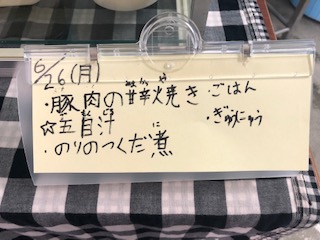 6/26(月)
・豚肉の甘辛焼き ・ごはん
☆五目汁 ・ぎゅうにゅう
・のりのつくだ煮